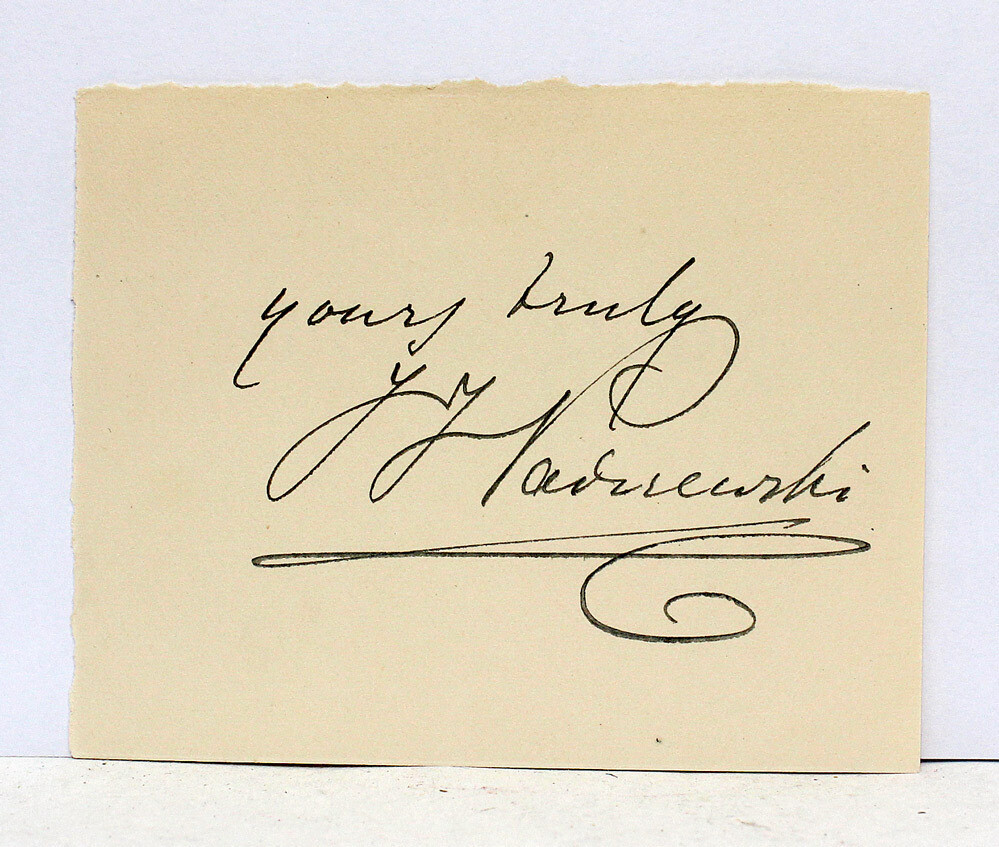 yours truly
J J Paderewski